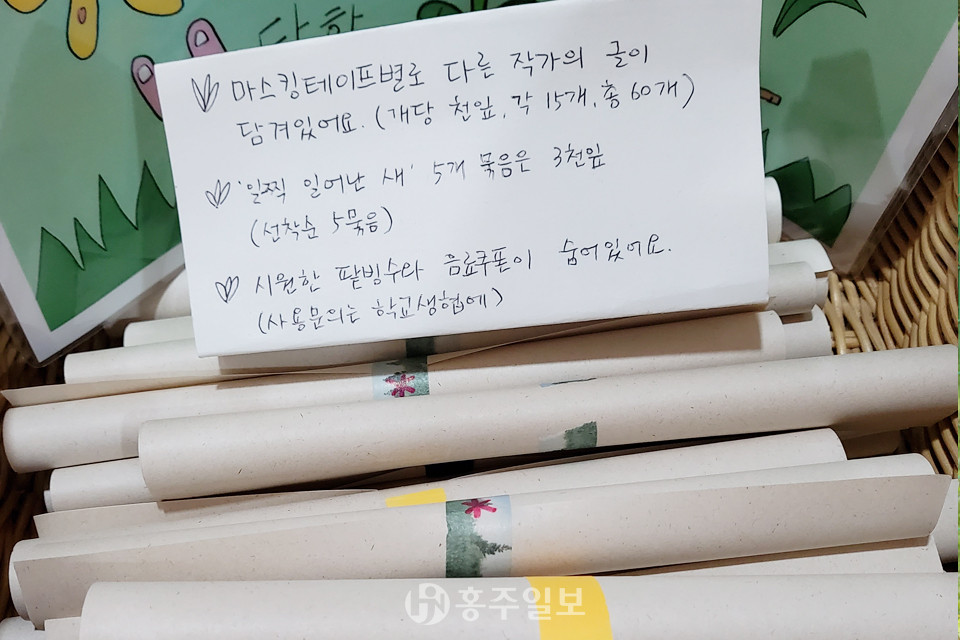 마스킹테이프별로 다른 작가의 글이
담겨있어요. (개당 천잎, 각 15개, 총 60개)
'일찍 일어난 새' 5개 묶음은 3천잎
(선착순 5묶음)
시원한 팥빙수와 음료쿠폰이 숨어있어요.
(사용문의는 학교생협에)
홍주일보